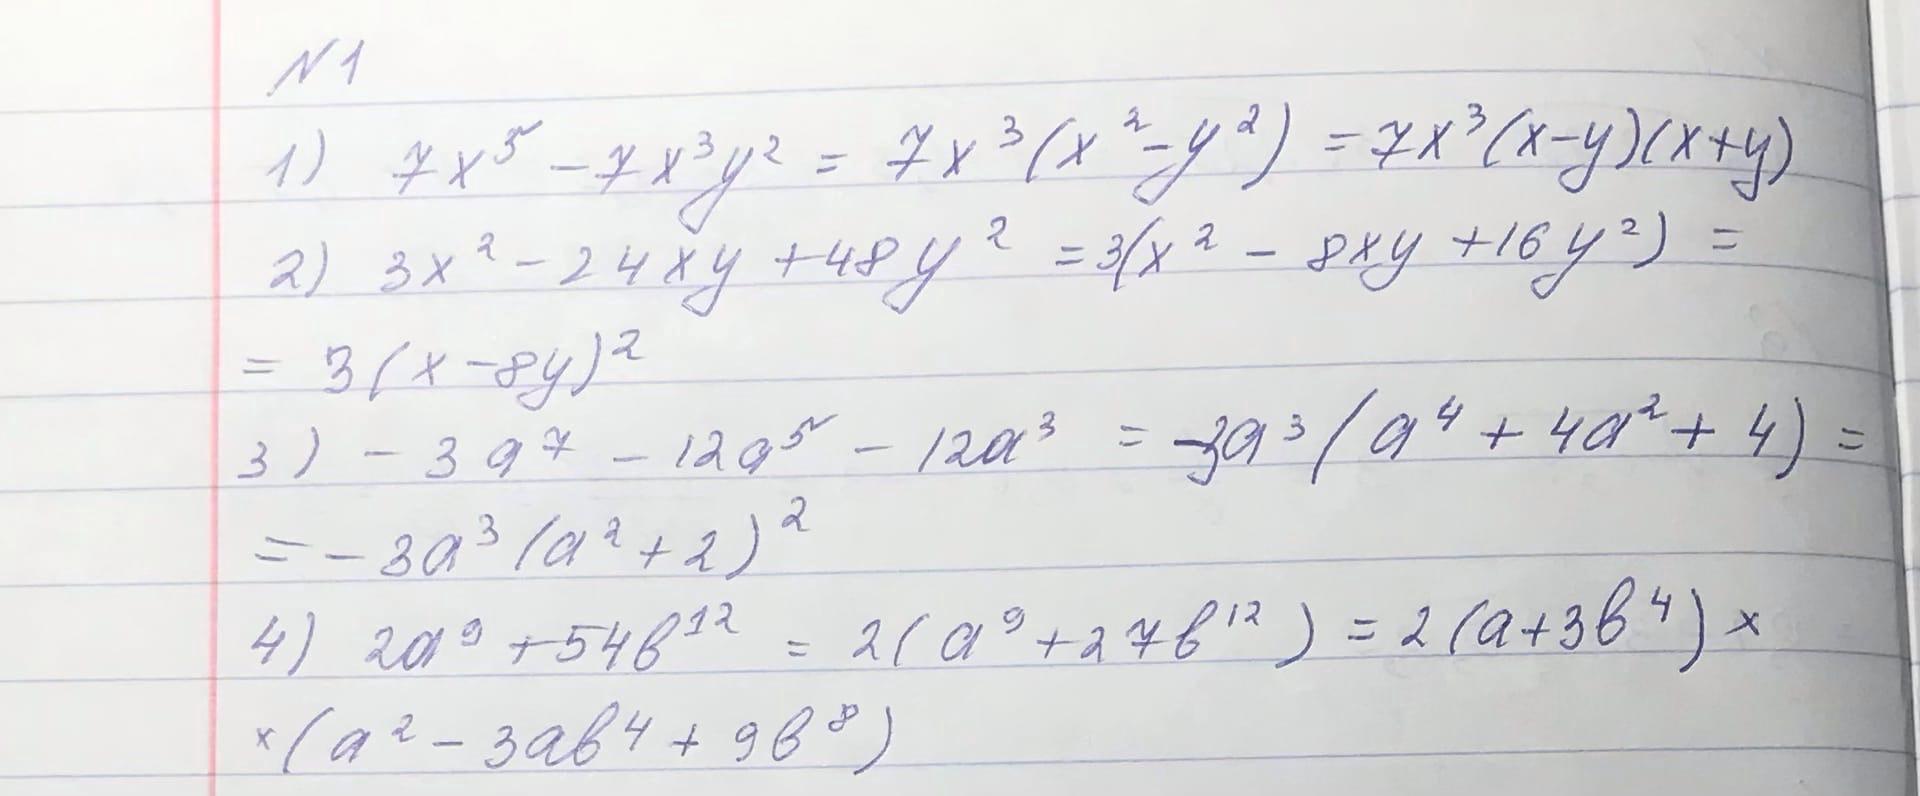 N1
1) 7x⁵ - 7x³y² = 7x³(x² - y²) = 7x³(x-y)(x+y)
2) 3x² - 24xy + 48y² = 3(x² - 8xy + 16y²) =
= 3(x - 8y)²
3) - 3a⁷ - 12a⁵ - 12a³ = -3a³(a⁴ + 4a² + 4) =
= -3a³(a² + 2)²
4) 2a⁹ + 54b¹² = 2(a⁹ + 27b¹²) = 2(a + 3b⁴) ×
× (a² - 3ab⁴ + 9b⁸)